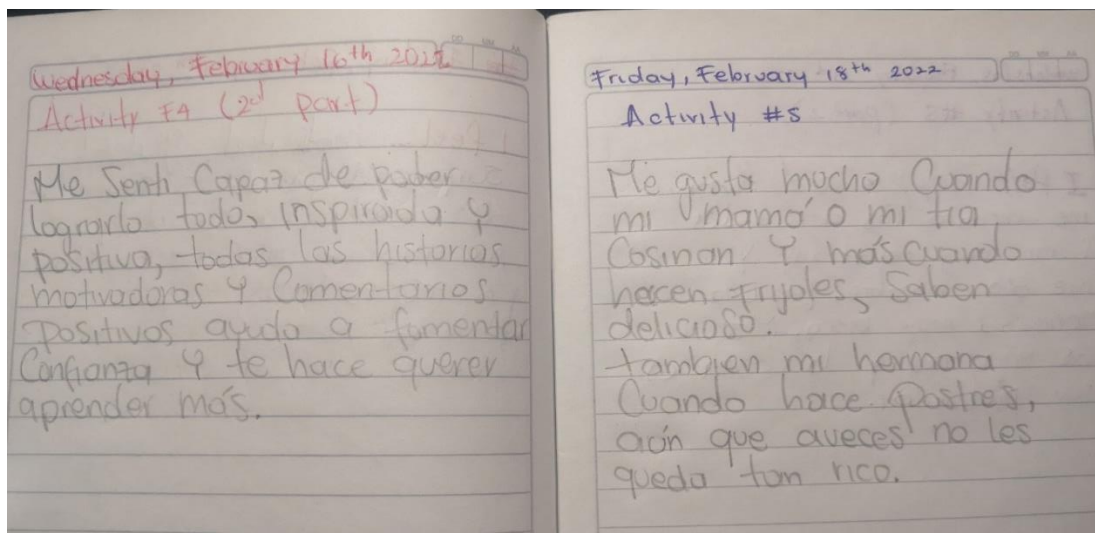 Wednesday, February 16th 2022
Activity #4 (2d part)
Me Senti Capaz de poder
lograrlo todo, inspirada y
positiva, todas las historias
motivadoras y Comentarios
positivos ayuda a fomentar
Confianza y te hace querer
aprender más.
Friday, February 18th 2022
Activity #5
Me gusta mucho Cuando
mi mamá o mi tia
Cosinan y más Cuando
hacen frijoles, Saben
delicioso.
tambien mi hermana
Cuando hace postres,
aún que aveces no les
queda tam rico.